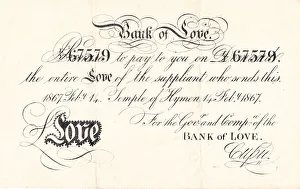 Bank of Love.
No 67579 to pay to you on No 67579.
the entire Love of the suppliant who sends this.
1867. Feby 14. Temple of Hymen 14 Feby 1867.
For the Govr and Compy of the
BANK of LOVE.
£ Love
Cupid